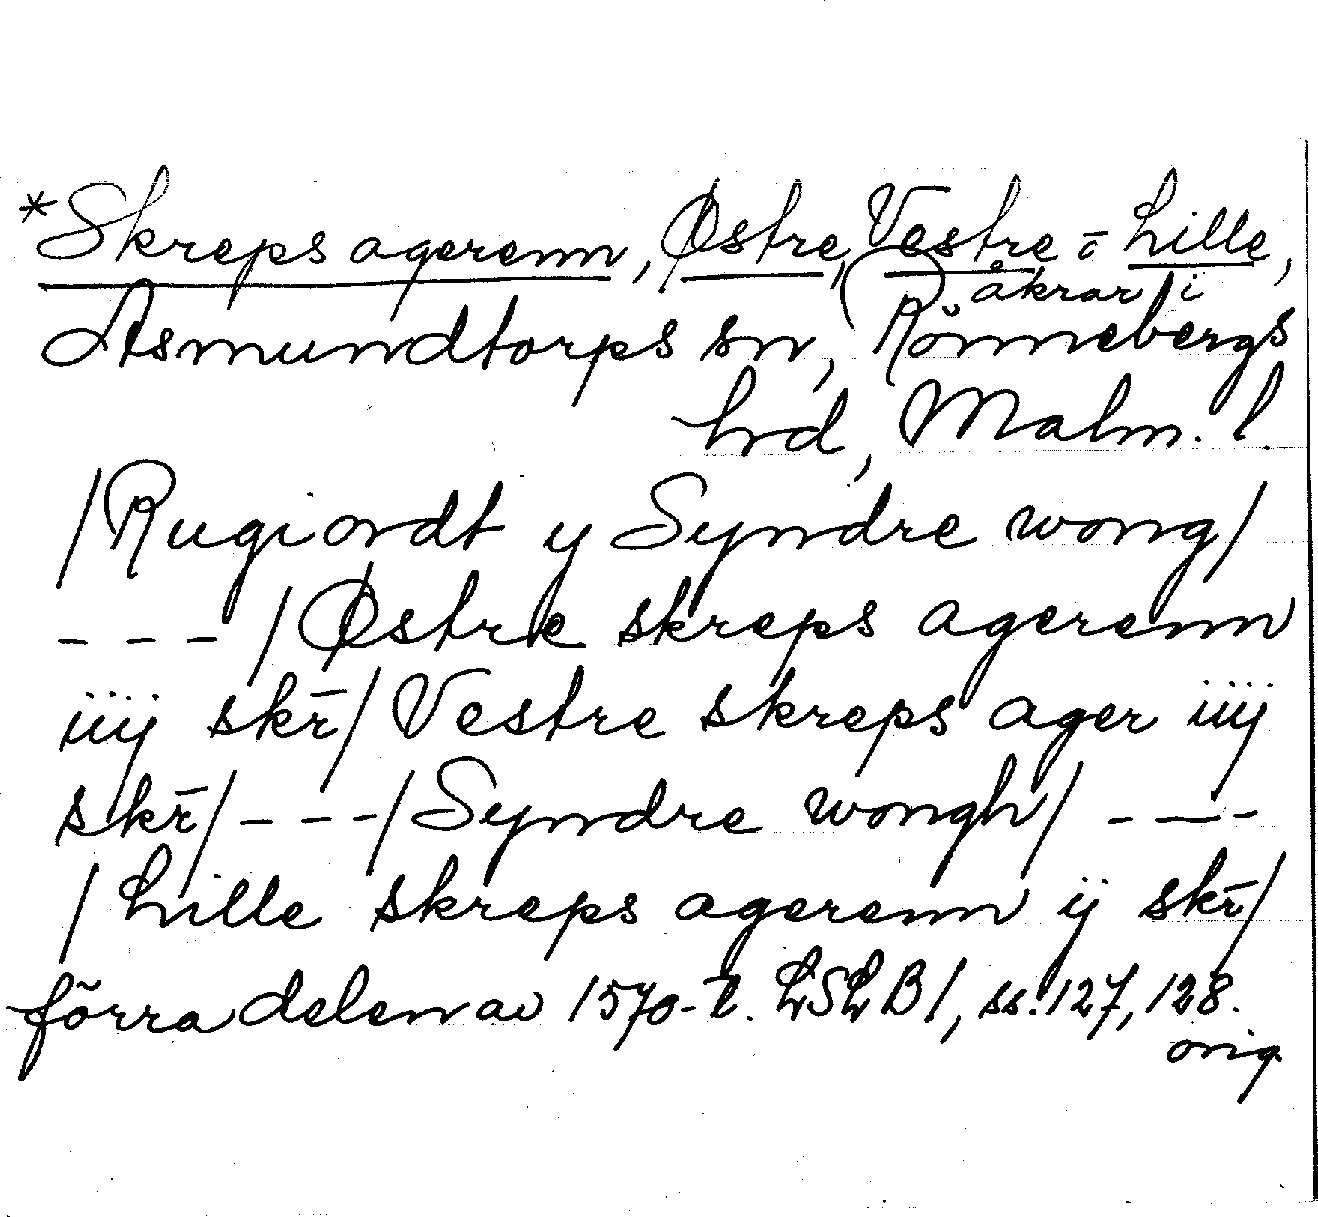 *Skreps agerenn, Østre, Vestre o Lille,
åkrar i
Asmundtorps sn, Rönnebergs
hrd, Malm. l.
/Rugiordt y Syndre wong/
- - - /Østre skreps agerenn
iiij skr̄/ Vestre skreps ager iiij
skr̄/ - - - /Syndre wongh/ - - -
/Lille skreps agerenn ij skr̄/
förra delen av 1570-t. LSLB 1, ss. 127, 128.
orig.